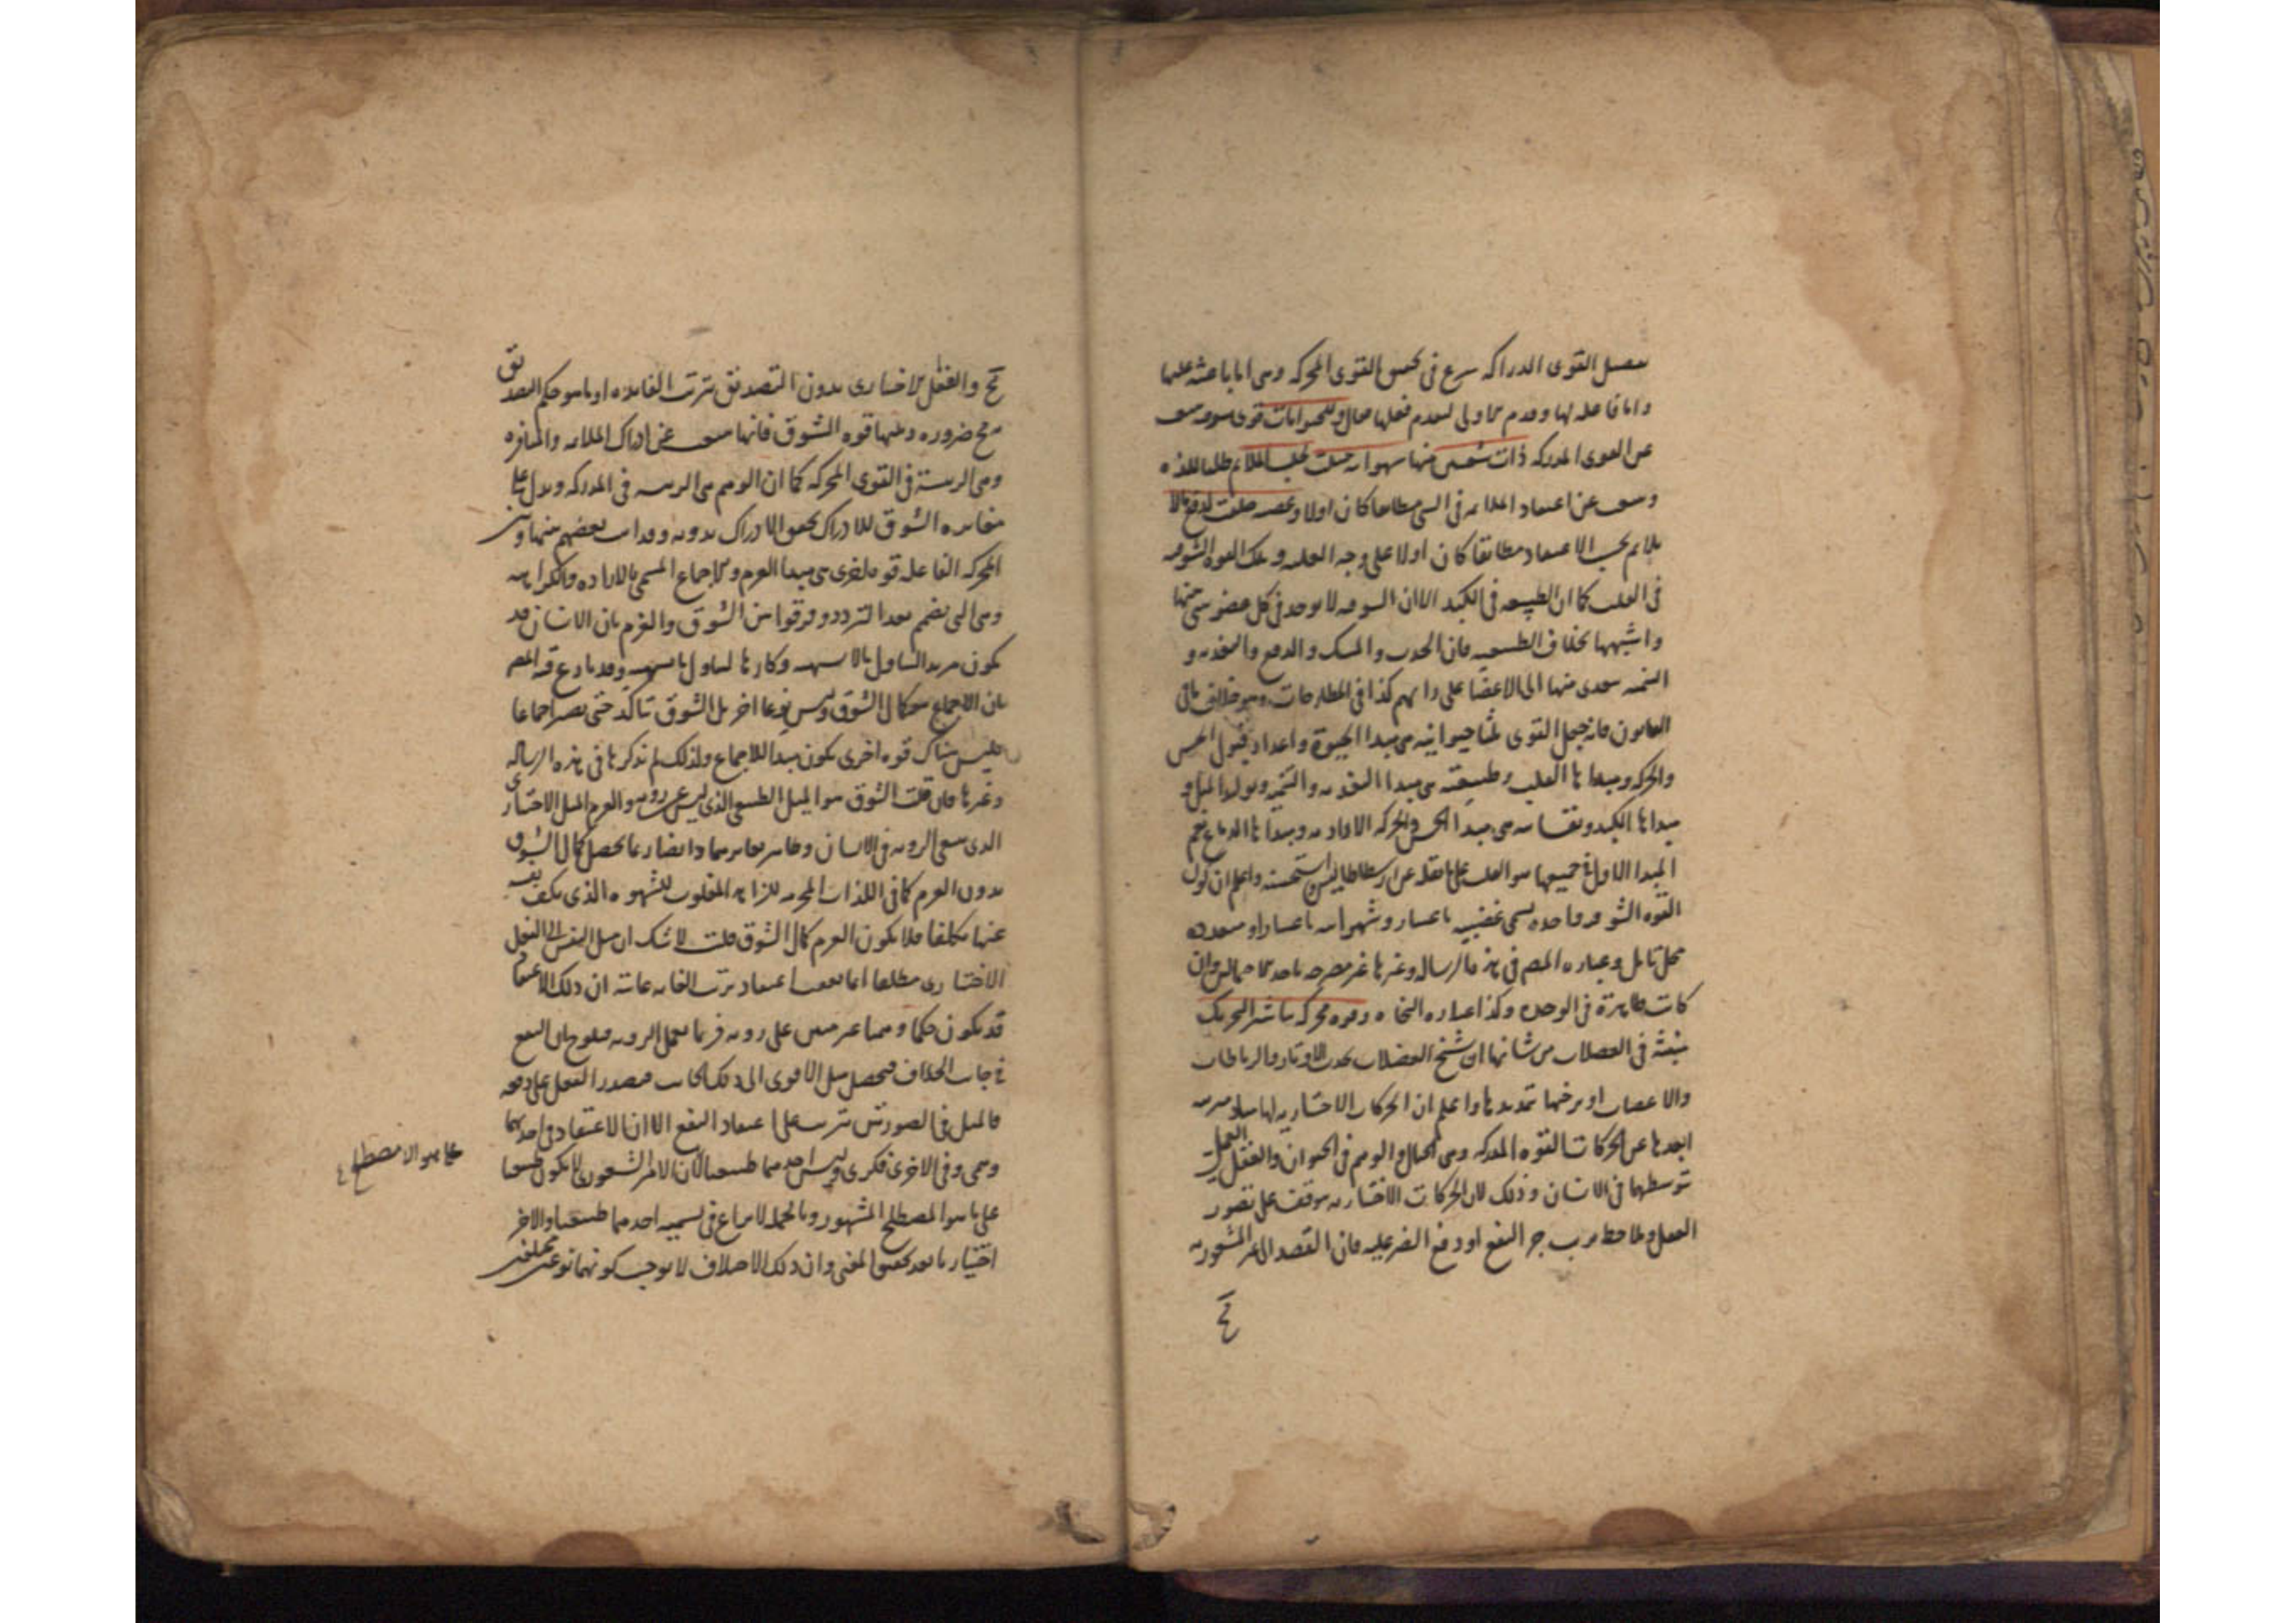 القوى الدراكة شرع في القوى المحركة وهي اما باعثة عليها
واما فاعلة لها وقدم فعلها فقال وللحيوانات قوى شوقية
عن القوى المدركة ذات شعبتين منها شهوانية جبلت لجلب الملائم طلبا للذة
عن اعتقاد الملائمة في الشي مطابقا كان اولا وغضبية خلقت لدفع ما لا
يلائم بحسب الاعتقاد مطابقا كان اولا على وجه الغلبة وتلك القوة الشوقية
في القلب كما ان الطبيعية في الكبد الا ان الشوقية لا توجد في كل عضو
بخلاف الطبيعية فان الجذب والمسك والدفع والتغذية و
التنمية منها الى الاعضا على رايهم كذا في المطارحات وهو خلاف ما في
القانون فانه جعل القوى ثلثا حيوانية هي مبدا الحيوة واعداد قبول الحس
والحركة ومبداها القلب وطبيعية هي مبدا التغذية والتنمية وتوليد المثل و
مبداها الكبد ونفسانية هي مبدا الحس والحركة الارادية ومبداها الدماغ ثم
المبدا الاول في جميعها هو القلب على ما نقله عن ارسطاطاليس واستحسنه واعلم ان كون
القوة الشوقية واحدة تسمى غضبية باعتبار وشهوانية باعتبار او متعددة
محل تامل وعبارة المص في هذه الرسالة وغيرها غير مصرحة باحد الاحتمالين وان
كانت ظاهرة في الوحدة وكذا عبارة وقوة محركة تباشر التحريك
منبثة في العضلات من شانها ان تشنج العضلات بجذب الاوتار والرباطات
والاعصاب او ترخيها بتمديدها واعلم ان الحركات الاختيارية لها مباد مترتبة
ابعدها عن الحركات القوة المدركة وهي الخيال والوهم في الحيوان والعقل العملي
بتوسطهما في الانسان وذلك لان الحركات الاختيارية موقوفة على تصور
الفعل وملاحظة ترتب جر النفع او دفع الضر عليه فان القصد الى غير المشعور به
مح
مح والفعل الاختياري بدون التصديق بترتب الفايدة او ما هو في حكم التصديق
مح ضرورة وتليها قوة الشوق فانها تنبعث عن ادراك الملايمة والمنافرة
وهي الرئيسة في القوى المحركة كما ان الوهم هي الرئيسة في المدركة ويدل على
مغايرة الشوق للادراك تحقق الادراك بدونه بعضهم بينها وبين
المحركة الفاعلة قوة اخرى هي مبدا العزم والاجماع المسمى بالارادة والكراهة
وهي التي تصمم بعد التردد وفرقوا بين الشوق والعزم بان الانسان قد
يكون مريدا لتناول ما لا يشتهيه وكارها لتناول ما يشتهيه وقد نازع فيه المص
بان الاجماع هو كمال الشوق وليس نوعا اخر بل الشوق يتاكد حتى يصير اجماعا
فليس هناك قوة اخرى يكون مبدا للاجماع ولذلك لم نذكرها في هذه الرسالة
وغيرها فان قلت الشوق هو الميل الطبيعي الذي ليس عن روية والعزم الميل الاختياري
الذي يتبع الروية في الانسان وظاهر تغايرهما وايضا ربما يحصل كمال الشوق
بدون العزم كما في اللذات المحرمة للزاهد المغلوب للشهوة الذي يكف نفسه
عنها تكلفا فلا يكون العزم كمال الشوق قلت لا شك ان ميل النفس الى الفعل
الاختياري مطلقا انما يتبع اعتقاد ترتب الغاية غايته ان ذلك الاعتقاد
قد يكون حكما وهميا غير مبني على روية فربما تعمل الروية فيلوح ان النفع
في جانب الخلاف فيحصل ميل الاقوى الى ذلك الجانب فيصدر الفعل على وفقه
فالميل في الصورتين مترتب على اعتقاد النفع الا ان الاعتقاد في احدهما
وهمي وفي الاخرى فكري وليس احدهما طبيعيا لان الامر الشعوري لا يكون طبيعيا
على ما هو المصطلح المشهور وبالجملة لا نزاع في تسمية احدهما طبيعيا والاخر
اختياريا بعد تحقق المعنى وان ذلك الاختلاف لا يوجب كونهما نوعين مختلفين
على ما هو الاصطلاح